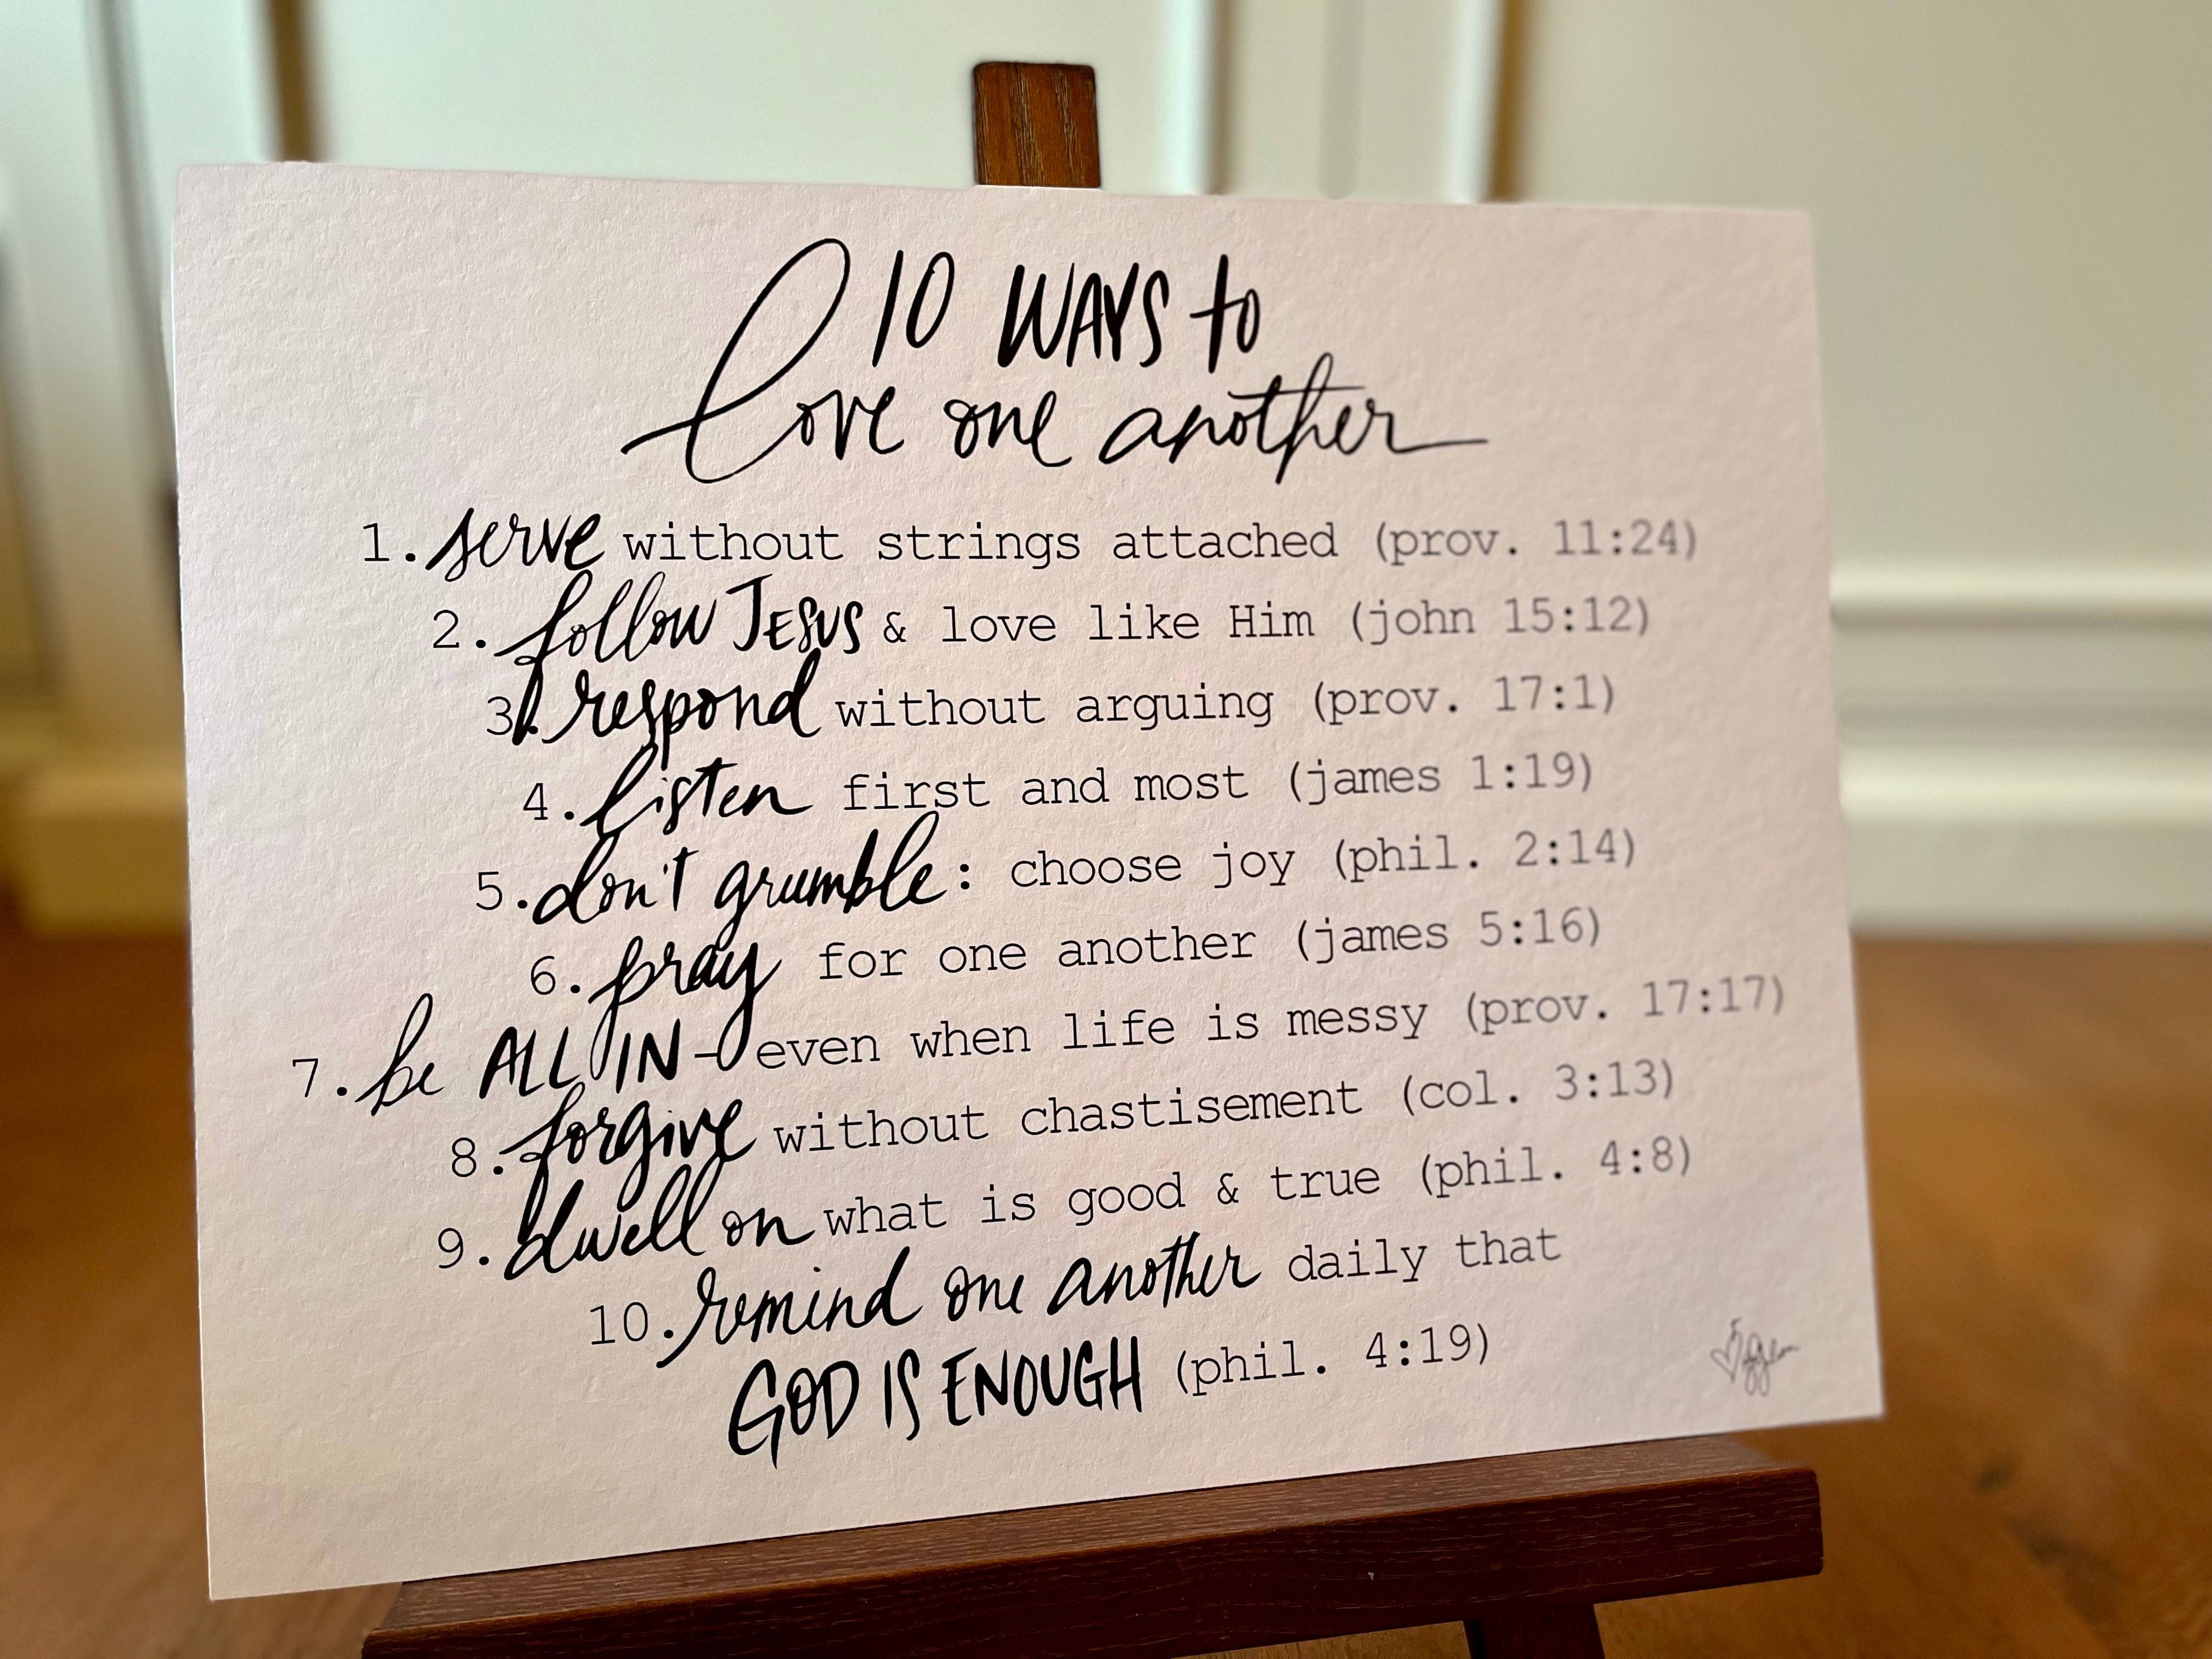 10 WAYS to
love one another
1. serve without strings attached (prov. 11:24)
2. follow JESUS & love like Him (john 15:12)
3. respond without arguing (prov. 17:1)
4. listen first and most (james 1:19)
5. don't grumble: choose joy (phil. 2:14)
6. pray for one another (james 5:16)
7. be ALL IN - even when life is messy (prov. 17:17)
8. forgive without chastisement (col. 3:13)
9. dwell on what is good & true (phil. 4:8)
10. remind one another daily that
GOD IS ENOUGH (phil. 4:19)